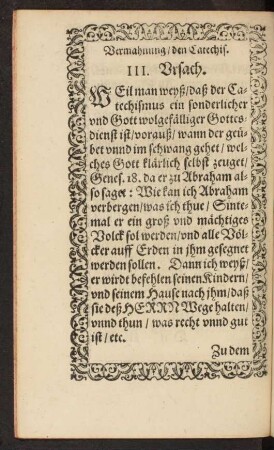 Vermahnung/den Catechis.
III. Vrsach.
WEil man weyß/daß der Ca-
techismus ein sonderlicher
vnd Gott wolgefälliger Gottes-
dienst ist/vorauß/wann der geü-
bet vnnd im schwang gehet/wel-
ches Gott klärlich selbst zeuget/
Genes. 18. da er zu Abraham al-
so saget: Wie kan ich Abraham
verbergen/was ich thue/Sinte-
mal er ein groß vnd mächtiges
Volck sol werden/vnd alle Völ-
cker auff Erden in jhm gesegnet
werden sollen. Dann ich weyß/
er wirdt befehlen seinen Kindern/
vnd seinem Hause nach jhm/daß
sie deß HERRN Wege halten/
vnnd thun/was recht vnnd gut
ist/etc.
Zu dem